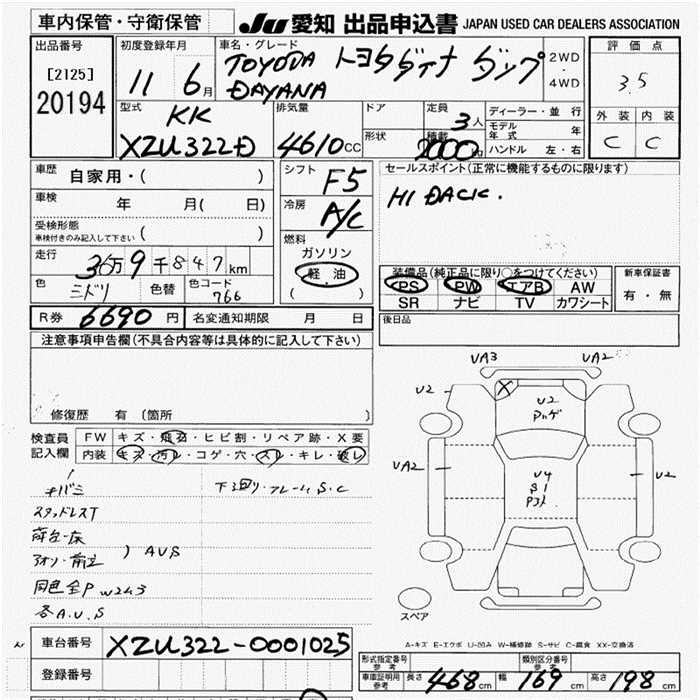 車内保管・守衛保管
JU 愛知 出品申込書 JAPAN USED CAR DEALERS ASSOCIATION
出品番号
[2125]
20194
初度登録年月
11年 6月
車名・グレード
TOYODA トヨタダイナ ダンプ
DAYANA
2WD
・
4WD
評価点
3.5
外装 内装
C C
型式
KK
XZU322D
排気量
4610CC
ドア
形状
定員
3人
積載
2000
ディーラー・並行
モデル年式 年
ハンドル 左・右
車歴
自家用・( )
車検 年 月( 日)
受検形態
車検付きのみ記入して下さい ( )
走行
36万9千847km
色
ミドリ
色替
色コード
766
シフト
F5
冷房
A/C
燃料
ガソリン
軽油
( )
セールスポイント(正常に機能するものに限ります)
HI DACK.
装備品(純正品に限り○をつけてください)
PS PW エアB AW
SR ナビ TV カワシート
新車保証書
有・無
R券 6690円 名変通知期限 月 日
後日品
注意事項申告欄(不具合内容等は具体的に記入して下さい)
修復歴 有(箇所 )
検査員
記入欄
FW キズ・飛石・ヒビ割・リペア跡・X要
内装 キズ・汚レ・コゲ・穴・スレ・キレ・破レ
キバミ
スタッドレスT
荷台-床
アオリ・前立
) AUS
同色全P W2,3
各A.U.S
下廻り・フレームS.C
UA3 UA2
U2
X
U2
UA2
U4
S1
U2
スペア
A-キズ E-エクボ U-凹み W-補修跡 S-サビ C-腐食 XX-交換済
車台番号 XZU322-0001025
登録番号
形式指定番号
参考
類別区分番号
参考
車庫証明用
参考
長さ 468cm 幅 169cm 高さ 198cm